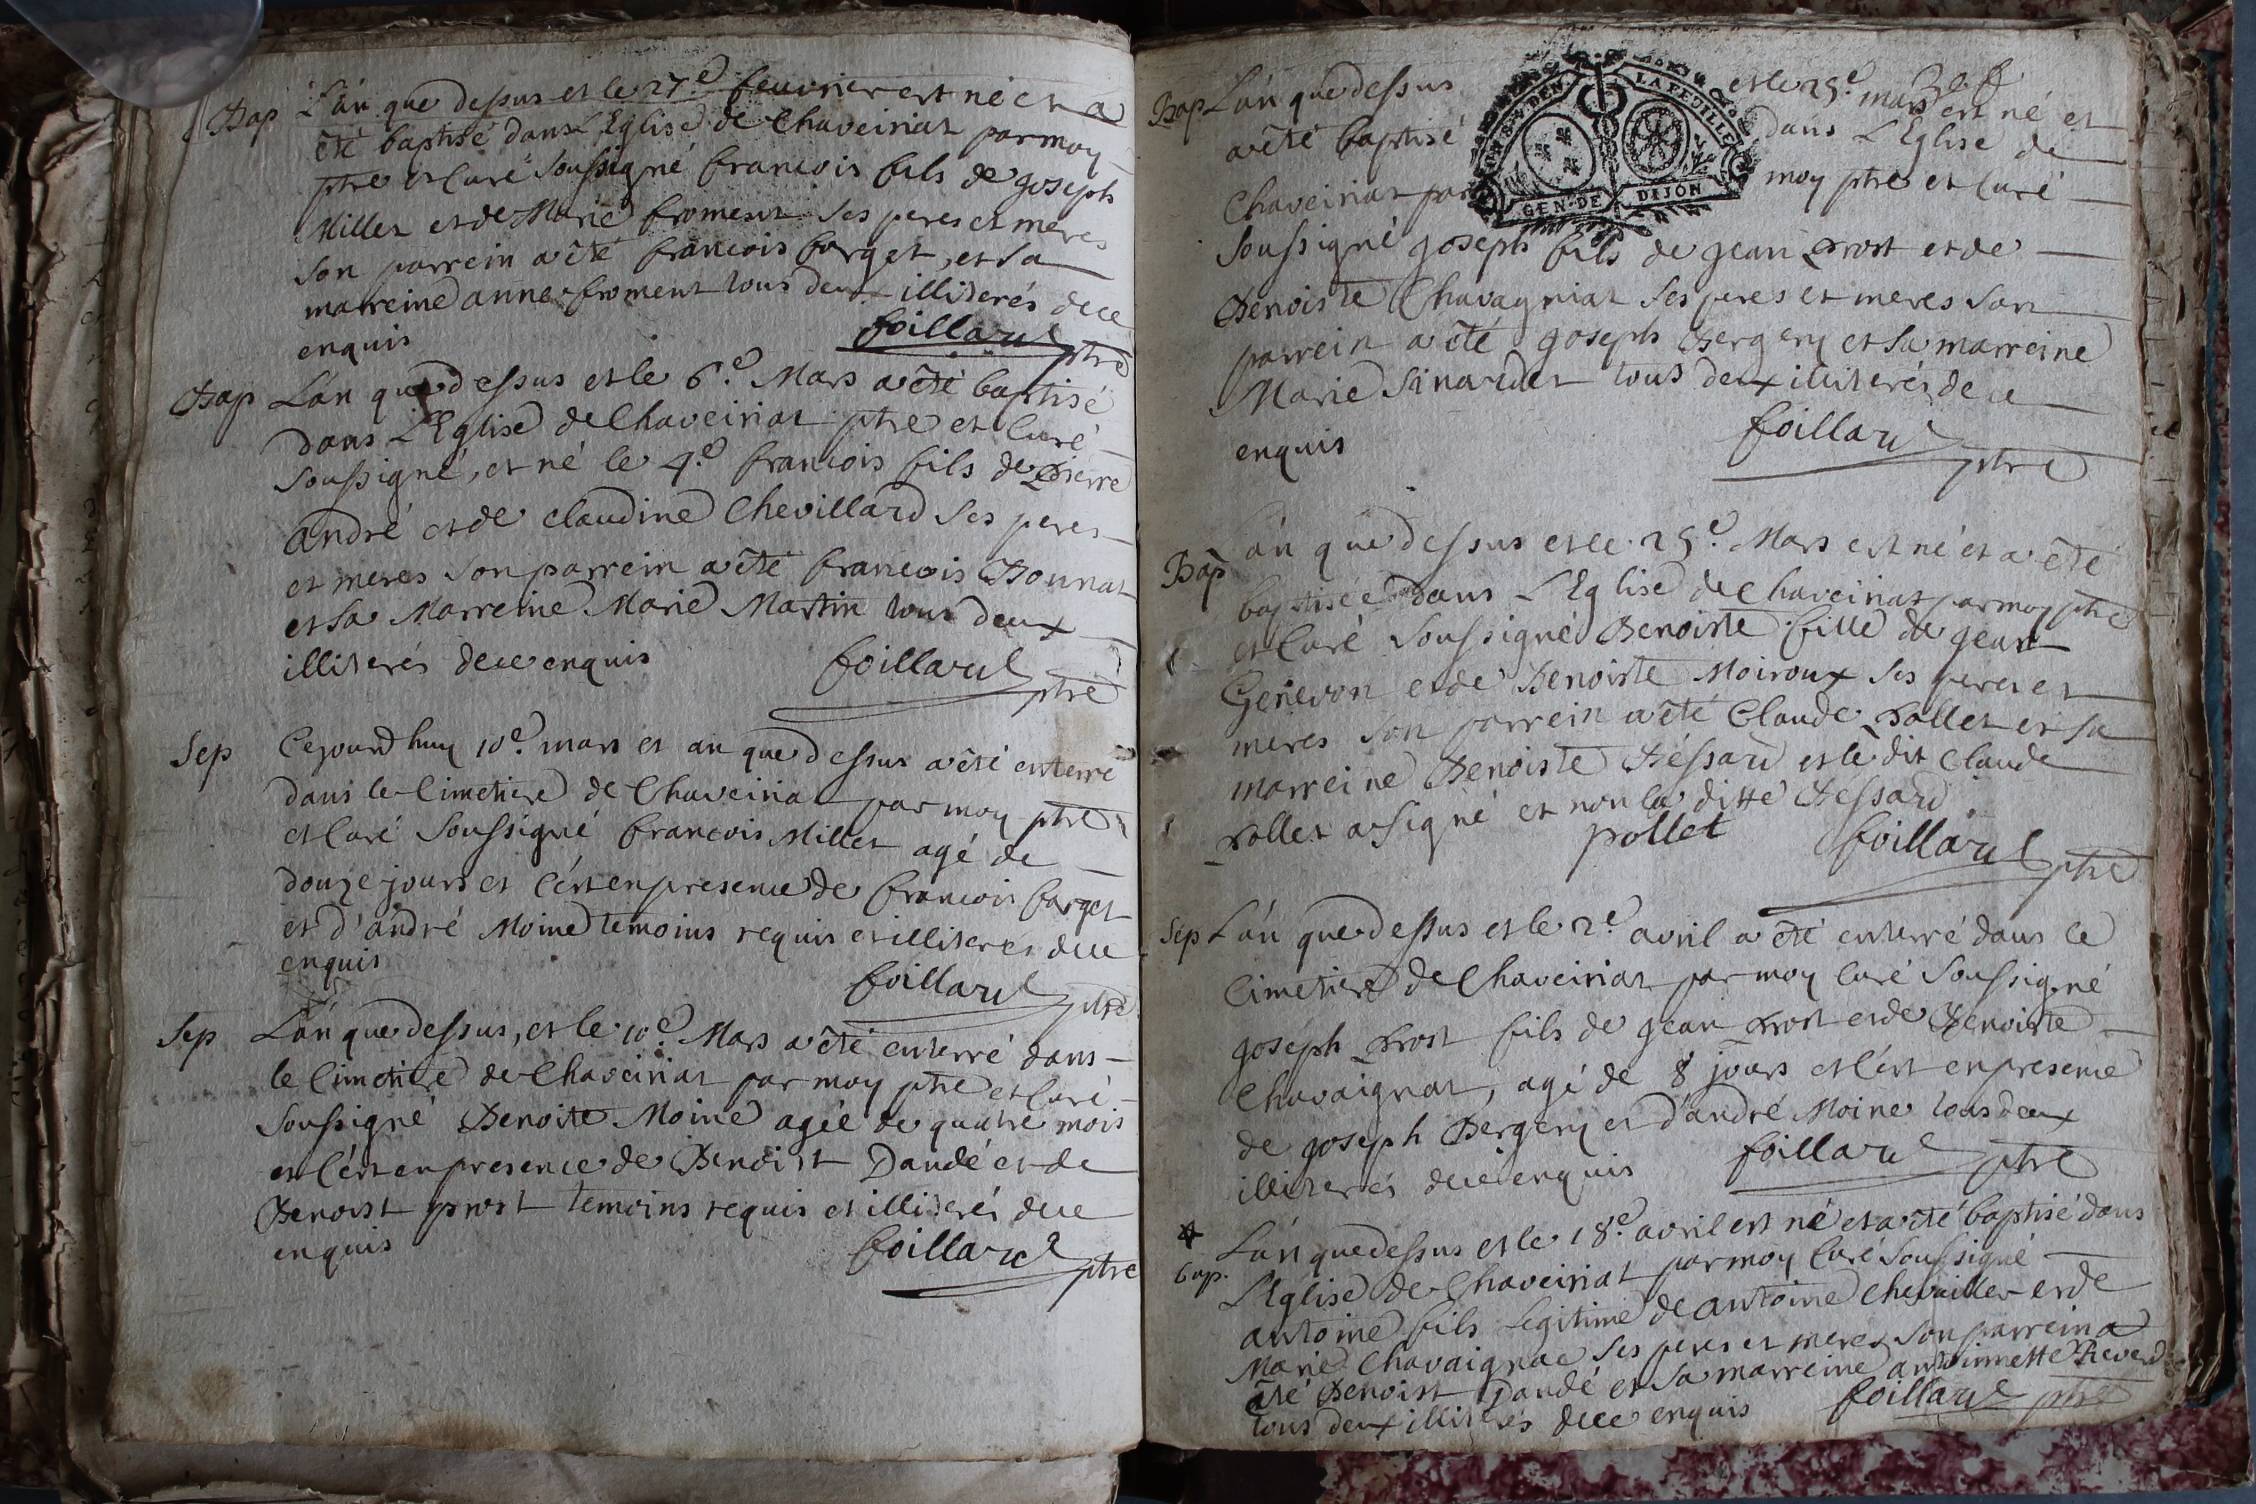 Bap L'an que dessus et le 27.e feuvrier est né et a
été baptisé dans L'Eglise de Chaveiriat par moy
ptre et Curé Soussigné francois fils de joseph
Millet et de Marie froment ses peres et meres
son parrein a été francois forget, et sa
marreine anne froment tous deux illiterés de ce
enquis foillard ptre
Bap L'an que dessus et le 6.e Mars a été baptisé
dans L'Eglise de Chaveiriat ptre et Curé
soussigné, et né le 4.e francois fils de Pierre
andré et de claudine Chevillard ses peres
et meres son parrein a été francois Bonnat
et sa Marreine Marie Martin tous deux
illiterés de ce enquis foillard ptre
Sep Cejourdhuy 10.e mars et an que dessus a été enterré
dans le Cimetiere de Chaveiriat par moy ptre
et Curé Soussigné francois Millet agé de
douze jours et c'est en presence de francois forget
et d'andré Moine temoins requis et illiterés de ce
enquis foillard ptre
Sep L'an que dessus, et le 10.e Mars a été enterré dans
le Cimetiere de Chaveiriat par moy ptre et Curé
soussigné Benoite Moine agée de quatre mois
et c'est en presence de Benoist Dandé et de
Benoist prost temoins requis et illiterés de ce
enquis foillard ptre
Bap L'an que dessus et le 25.e mars est né et
a été baptisé dans L'Eglise de
Chaveiriat par moy ptre et Curé
LA FEUILLE
GEN·DE DIJON
soussigné joseph fils de jean Prost et de
Benoiste Chavagniat ses peres et meres son
parrein a été joseph Bergery et sa marreine
Marie Sinardet tous deux illiterés de ce
enquis foillard ptre
Bap L'an que dessus et le 25.e Mars est né et a été
baptisée dans L'Eglise de Chaveiriat par moy ptre
et Curé Soussigné Benoiste fille de jean
Genevon et de Benoiste Moiroux ses peres et
meres son parrein a été Claude Pollet et sa
marreine Benoiste Béssard et le dit Claude
Pollet a signé et non la ditte Bessard
pollet foillard ptre
Sep L'an que dessus et le 2.e avril a été enterré dans le
Cimetiere de Chaveiriat par moy Curé Soussigné
joseph Prost fils de jean Prost et de Benoiste
Chavaignat, agé de 8 jours et c'est en presence
de joseph Bergery et d'andré Moine tous deux
illiterés de ce enquis foillard ptre
bap. L'an que dessus et le 18.e avril est né et a été baptisé dans
L'Eglise de Chaveiriat par moy Curé Soussigné
antoine fils Legitime de antoine Chevailler et de
Marie Chavaignac ses peres et meres son parrein a
été Benoist Dandé et sa marreine antoinnette
tous deux illiterés de ce enquis foillard ptre